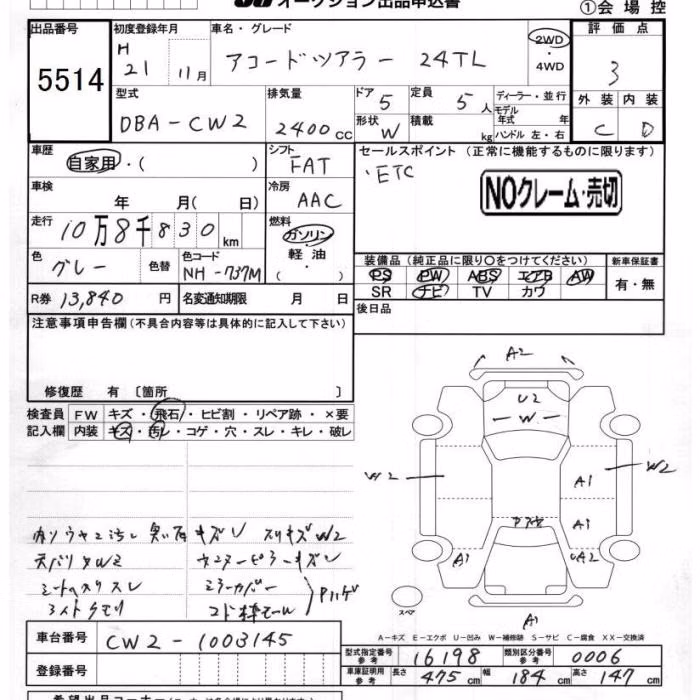 オークション出品申込書
①会場控
出品番号
5514
初度登録年月
H 21 11月
車名・グレード
アコードツアラー 24TL
2WD
・4WD
評価点
3
外装 内装
C D
型式
DBA-CW2
排気量
2400cc
ドア 5
定員 5人
形状 W
積載 kg
ディーラー・並行
モデル年式 年
ハンドル 左・右
車歴
自家用・( )
シフト
FAT
車検
年 月( 日)
冷房
AAC
セールスポイント (正常に機能するものに限ります)
・ETC
NOクレーム・売切
走行
10万8千830km
燃料
ガソリン
・軽油・
( )
色
グレー
色替
色コード
NH-737M
装備品(純正品に限り〇をつけてください)
新車保証書
PS PW ABS エアB AW
SR ナビ TV カワ
有・無
R券 13,840円
名変通知期限 月 日
後日品
注意事項申告欄(不具合内容等は具体的に記入して下さい)
修復歴 有 〔箇所 〕
検査員 FW キズ・飛石・ヒビ割・リペア跡・×要
記入欄 内装 キズ・汚レ・コゲ・穴・スレ・キレ・破レ
A2
U2
W
W2
W2
A1
A1
A1
UA2
A1
スペア
A-キズ E-エクボ U-凹み W-補修跡 S-サビ C-腐食 XX-交換済
車台番号 CW2-1003145
登録番号
型式指定番号 参考 16198
類別区分番号 参考 0006
車庫証明用 参考 長さ 475cm 幅 184cm 高さ 147cm